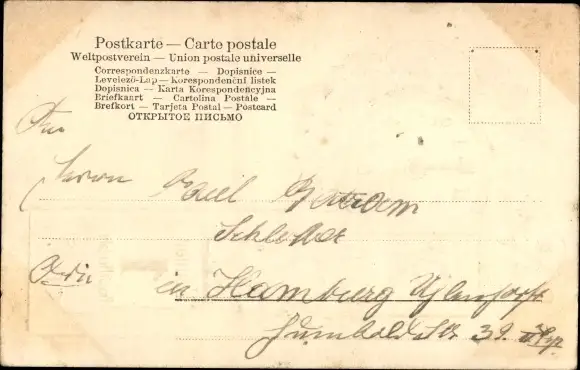 Postkarte — Carte postale
Weltpostverein — Union postale universelle
Correspondenzkarte — Dopisnice —
Levelező-Lap — Korespondenční lístek
Dopisnica — Karta Korespondencyjna
Briefkaart — Cartolina Postale —
Brefkort — Tarjeta Postal — Postcard
ОТКРЫТОЕ ПИСЬМО
Herrn
in Hamburg
Humboldtstr 39.